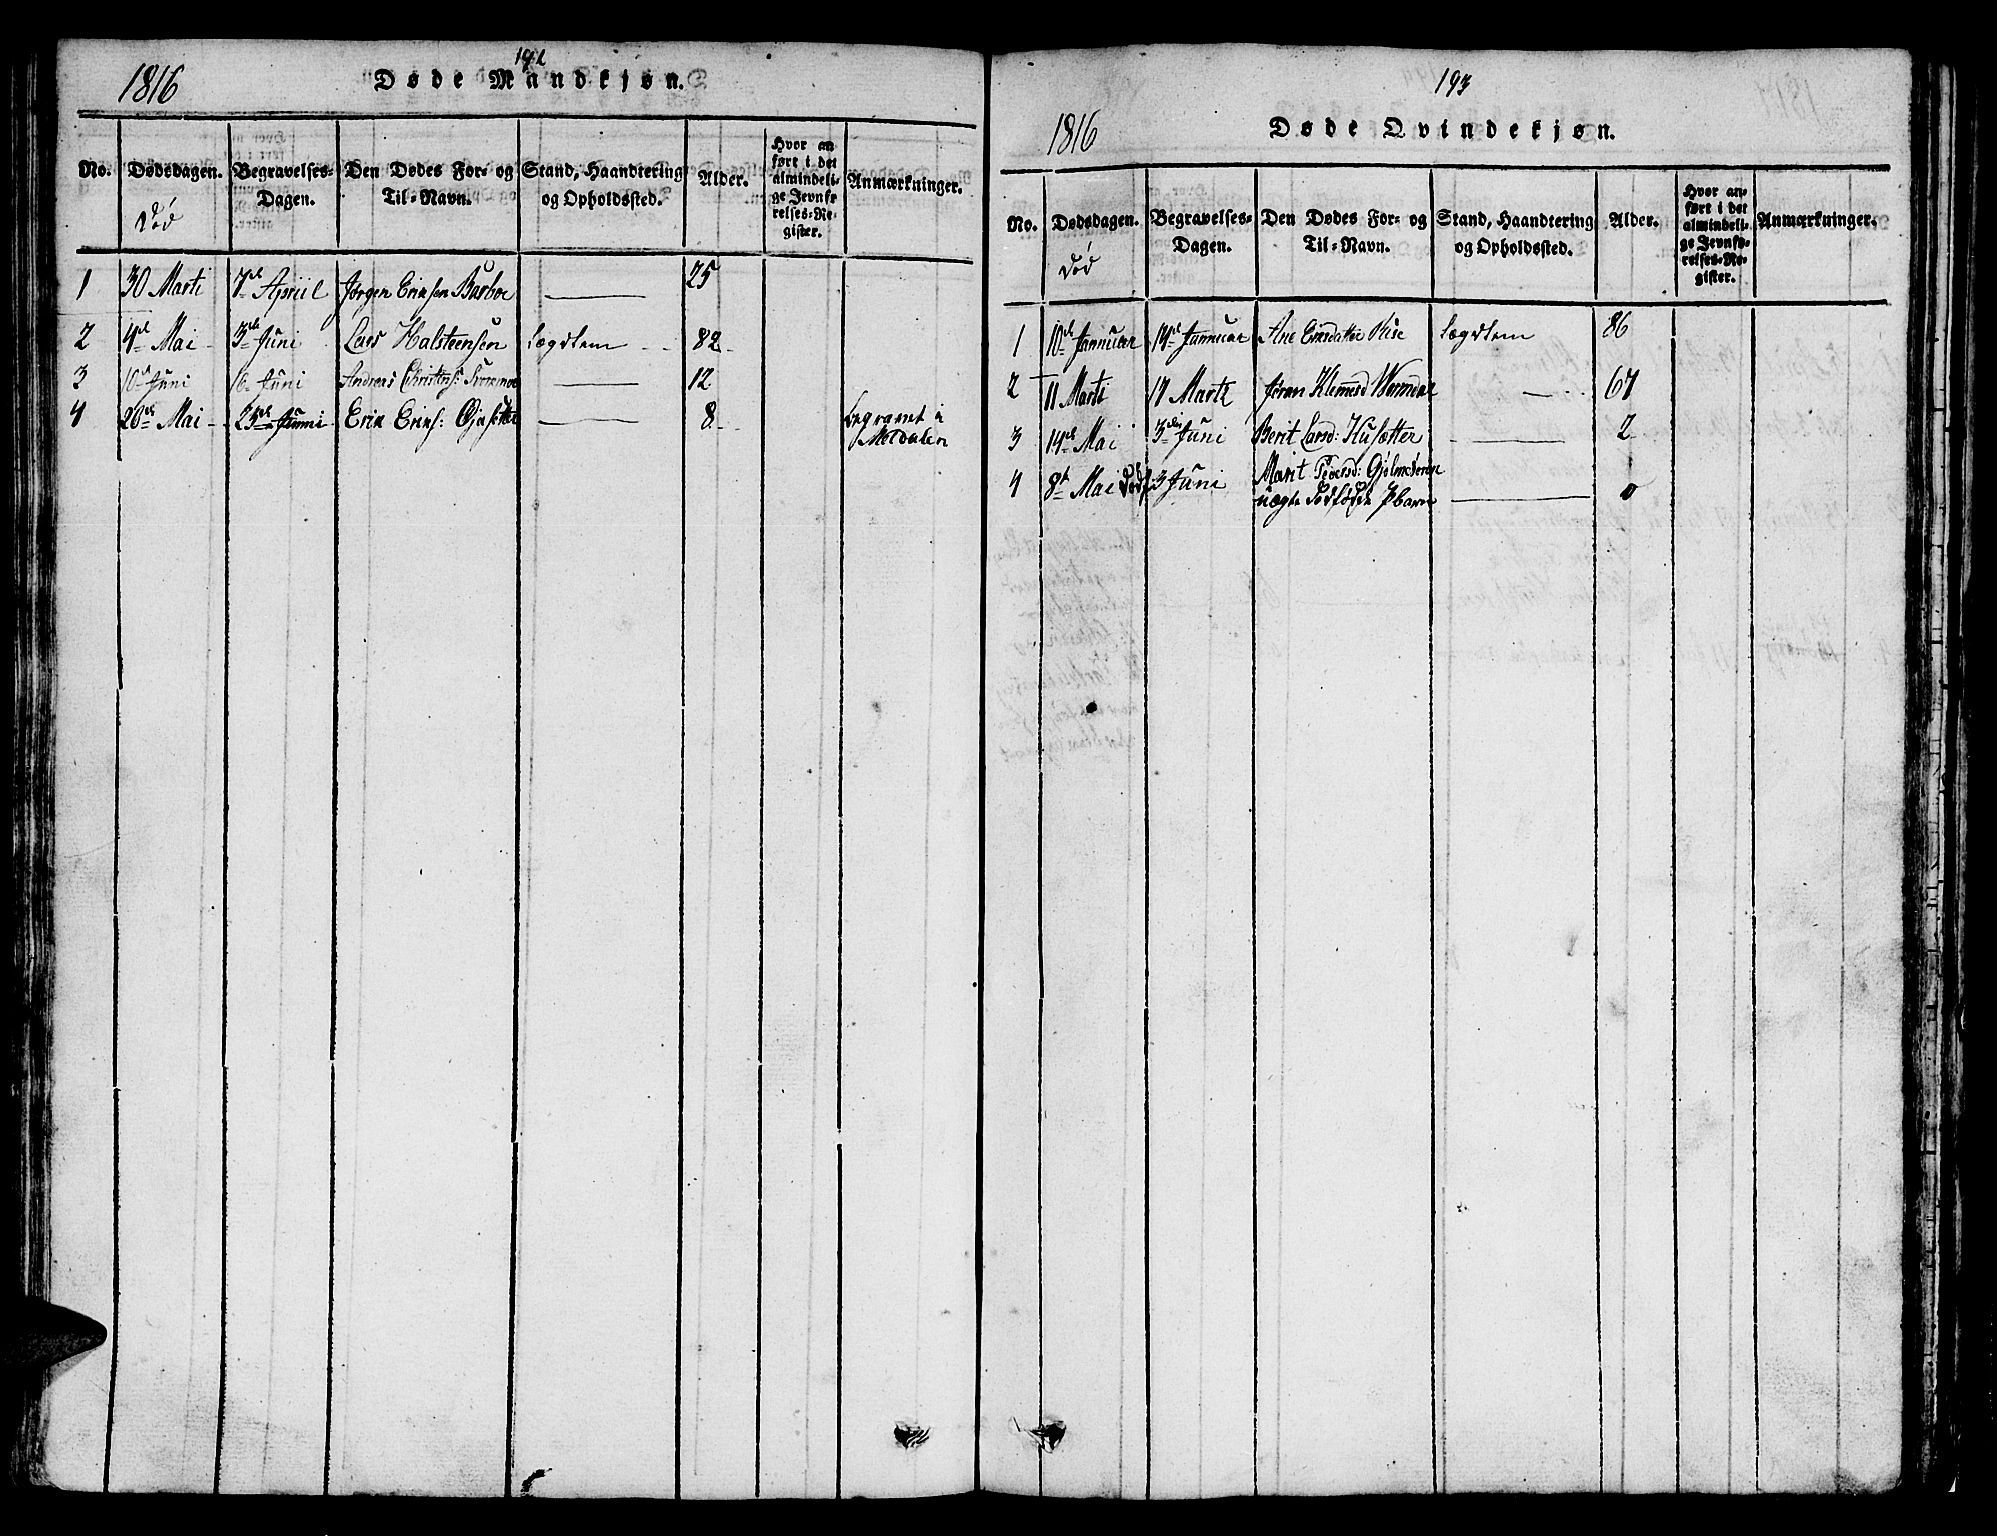 192
1816 Døde Mandkjøn.
No. Dødsdagen. Begravelses-Dagen. Den Dødes For- og Til-Navn. Stand, Haandtering og Opholdssted. Alder. Hvor anført i det almindelige Jevnførelses-Register. Anmærkninger.
Død
1 30 Marti 7de Apriil Jørgen Eriksen Barboe 25
2 4de Mai 3de Juni Lars Halsteensen Lægdlem 82
3 10 Juni 16 Juni Andreas Christens: 12
4 20de Mai 25de Juni Erik Eriks: 8 begravet i
Moldalen
193
1816 Døde Qvindekjøn.
No. Dødsdagen. Begravelses-Dagen. Den Dødes For- og Til-Navn. Stand, Haandtering og Opholdssted. Alder. Hvor anført i det almindelige Jevnførelses-Register. Anmærkninger.
Død
1 10de Januar 14de Januar Ane Eriksdatter Rise Lægdlem 86
2 11 Marti 17 Marti Jøran Klemesd 67
3 14de Mai 3die Juni Berit Larsd: Husætter 2
4 8de Mai 3 Juni Marit
uægte Dødfødt Pbarn 0